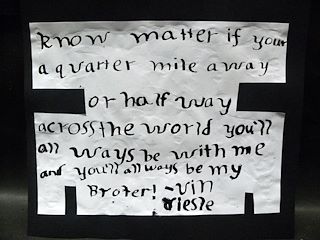 know matter if your
a quarter mile away
or half way
across the world you'll
all ways be with me
and you'll all ways be my
Broter! -vin
Diesle